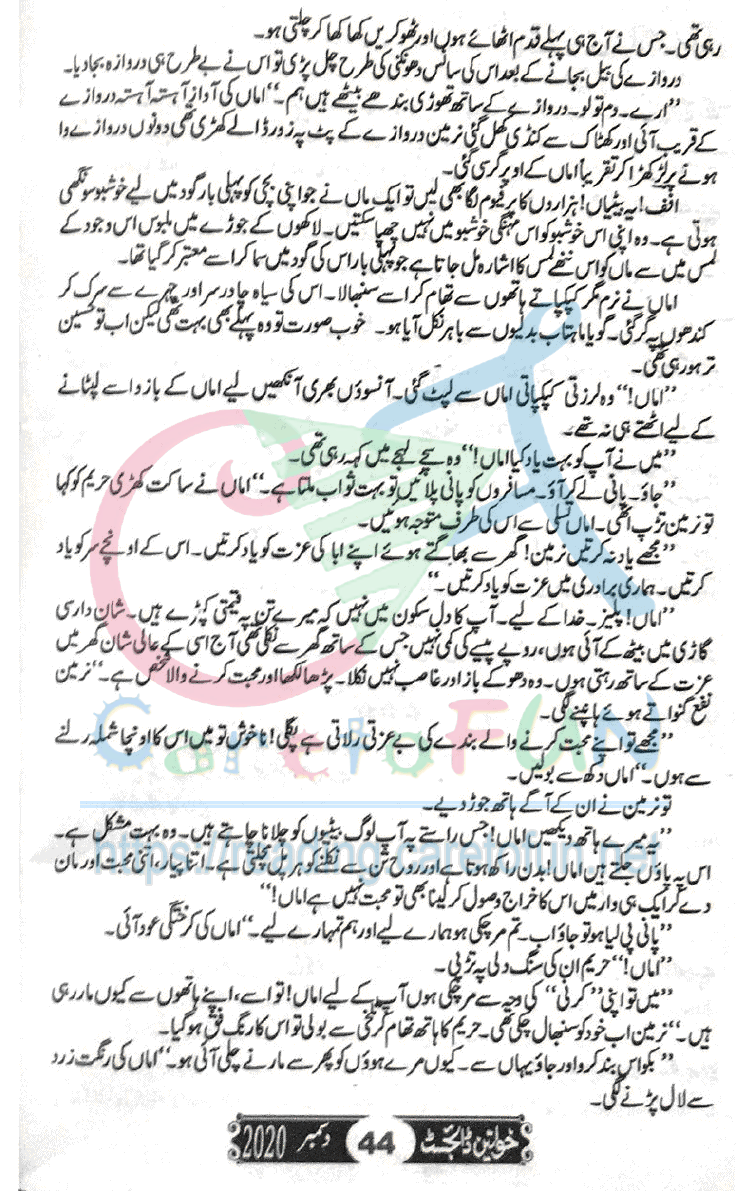 رہی تھی۔ جس نے آج ہی پہلے قدم اٹھائے ہوں اور ٹھوکریں کھا کھا کر چلتی ہو۔
دروازے کی بیل بجانے کے بعد اس کی سانس دھونکنی کی طرح چل پڑی تو اس نے بے طرح ہی دروازہ بجا دیا۔
”ارے۔ دم تو لو۔ دروازے کے ساتھ تھوڑی بندھے بیٹھے ہیں ہم۔“ اماں کی آواز آہستہ آہستہ دروازے
کے قریب آئی اور کھٹاک سے کنڈی کھل گئی نرمین دروازے کے پٹ پہ زور ڈالے کھڑی تھی دونوں دروازے وا
ہونے پر لڑکھڑا کر تقریباً اماں کے اوپر گر سی گئی۔
افف! یہ بیٹیاں! ہزاروں کا پرفیوم لگا بھی لیں تو ایک ماں نے جو اپنی بچی کو پہلی بار گود میں لیے خوشبو سونگھی
ہوتی ہے۔ وہ اپنی اس خوشبو کو اس مہنگی خوشبو میں نہیں چھپا سکتیں۔ لاکھوں کے جوڑے میں ملبوس اس وجود کے
لمس میں سے ماں کو اس ننھے لمس کا اشارہ مل جاتا ہے جو پہلی بار اس کی گود میں سما کر اسے معتبر کر گیا تھا۔
اماں نے نرم مگر کپکپاتے ہاتھوں سے تھام کر اسے سنبھالا۔ اس کی سیاہ چادر سر اور چہرے سے سرک کر
کندھوں پہ گر گئی۔ گویا ماہتاب بدلیوں سے باہر نکل آیا ہو۔ خوب صورت تو وہ پہلے بھی بہت تھی لیکن اب تو حسین
تر ہو رہی تھی۔
”اماں!“ وہ لرزتی کپکپاتی اماں سے لپٹ گئی۔ آنسوؤں بھری آنکھیں لیے اماں کے بازو اسے لپٹانے
کے لیے اٹھتے ہی نہ تھے۔
”میں نے آپ کو بہت یاد کیا اماں!“ وہ سچے لہجے میں کہہ رہی تھی۔
”جاؤ۔ پانی لے کر آؤ۔ مسافروں کو پانی پلائیں تو بہت ثواب ملتا ہے۔“ اماں نے ساکت کھڑی حریم کو کہا
تو نرمین تڑپ اٹھی۔ اماں تسلی سے اس کی طرف متوجہ ہوئیں۔
”مجھے یاد نہ کرتیں نرمین! گھر سے بھاگتے ہوئے اپنے ابا کی عزت کو یاد کرتیں۔ اس کے اونچے سر کو یاد
کرتیں۔ ہماری برادری میں عزت کو یاد کرتیں۔“
”اماں! پلیز۔ خدا کے لیے۔ آپ کا دل سکون میں نہیں کہ میرے تن پہ قیمتی کپڑے ہیں۔ شان دار سی
گاڑی میں بیٹھ کے آئی ہوں، روپے پیسے کی کمی نہیں جس کے ساتھ گھر سے نکلی تھی آج اسی کے عالی شان گھر میں
عزت کے ساتھ رہتی ہوں۔ وہ دھوکے باز اور غاصب نہیں نکلا۔ پڑھا لکھا اور محبت کرنے والا شخص ہے۔“ نرمین
نفع گنواتے ہوئے ہانپنے لگی۔
”مجھے تو اپنے محبت کرنے والے بندے کی بے عزتی رلاتی ہے پگلی! ناخوش تو میں اس کا اونچا شملہ رلنے
سے ہوں۔“ اماں دکھ سے بولیں۔
تو نرمین نے ان کے آگے ہاتھ جوڑ دیے۔
”یہ میرے ہاتھ دیکھیں اماں! جس راستے پہ آپ لوگ بیٹیوں کو چلانا چاہتے ہیں۔ وہ بہت مشکل ہے۔
اس پہ پاؤں جلتے ہیں اماں! بدن راکھ ہوتا ہے اور روح تن سے نکلنے کو ہر پل مچلتی ہے۔ اتنا پیار، اتنی محبت اور مان
دے کر ایک ہی وار میں اس کا خراج وصول کر لینا بھی تو محبت نہیں ہے اماں!“
”پانی پی لیا ہو تو جاؤ اب۔ تم مر چکی ہو ہمارے لیے اور ہم تمہارے لیے۔“ اماں کی کرختگی عود آئی۔
”اماں!“ حریم ان کی سنگ دلی پہ تڑپی۔
”میں تو اپنی ”کرنی“ کی وجہ سے مر چکی ہوں آپ کے لیے اماں! تو اسے، اپنے ہاتھوں سے کیوں مار رہی
ہیں۔“ نرمین اب خود کو سنبھال چکی تھی۔ حریم کا ہاتھ تھام کر تلخی سے بولی تو اس کا رنگ فق ہو گیا۔
”بکواس بند کرو اور جاؤ یہاں سے۔ کیوں مرے ہوؤں کو پھر سے مارنے چلی آئی ہو۔“ اماں کی رنگت زرد
سے لال پڑنے لگی۔
CareToFUN
https://reading.caretofun.net
خواتین ڈائجسٹ 44 دسمبر 2020